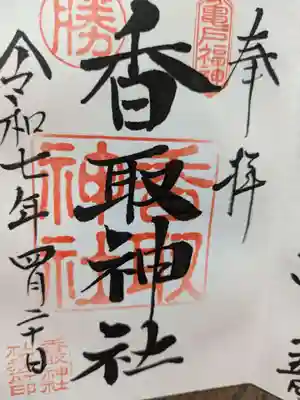 奉拝
亀戸福神
香取神社
勝
香取
神社
令和七年四月二十日
香取神社